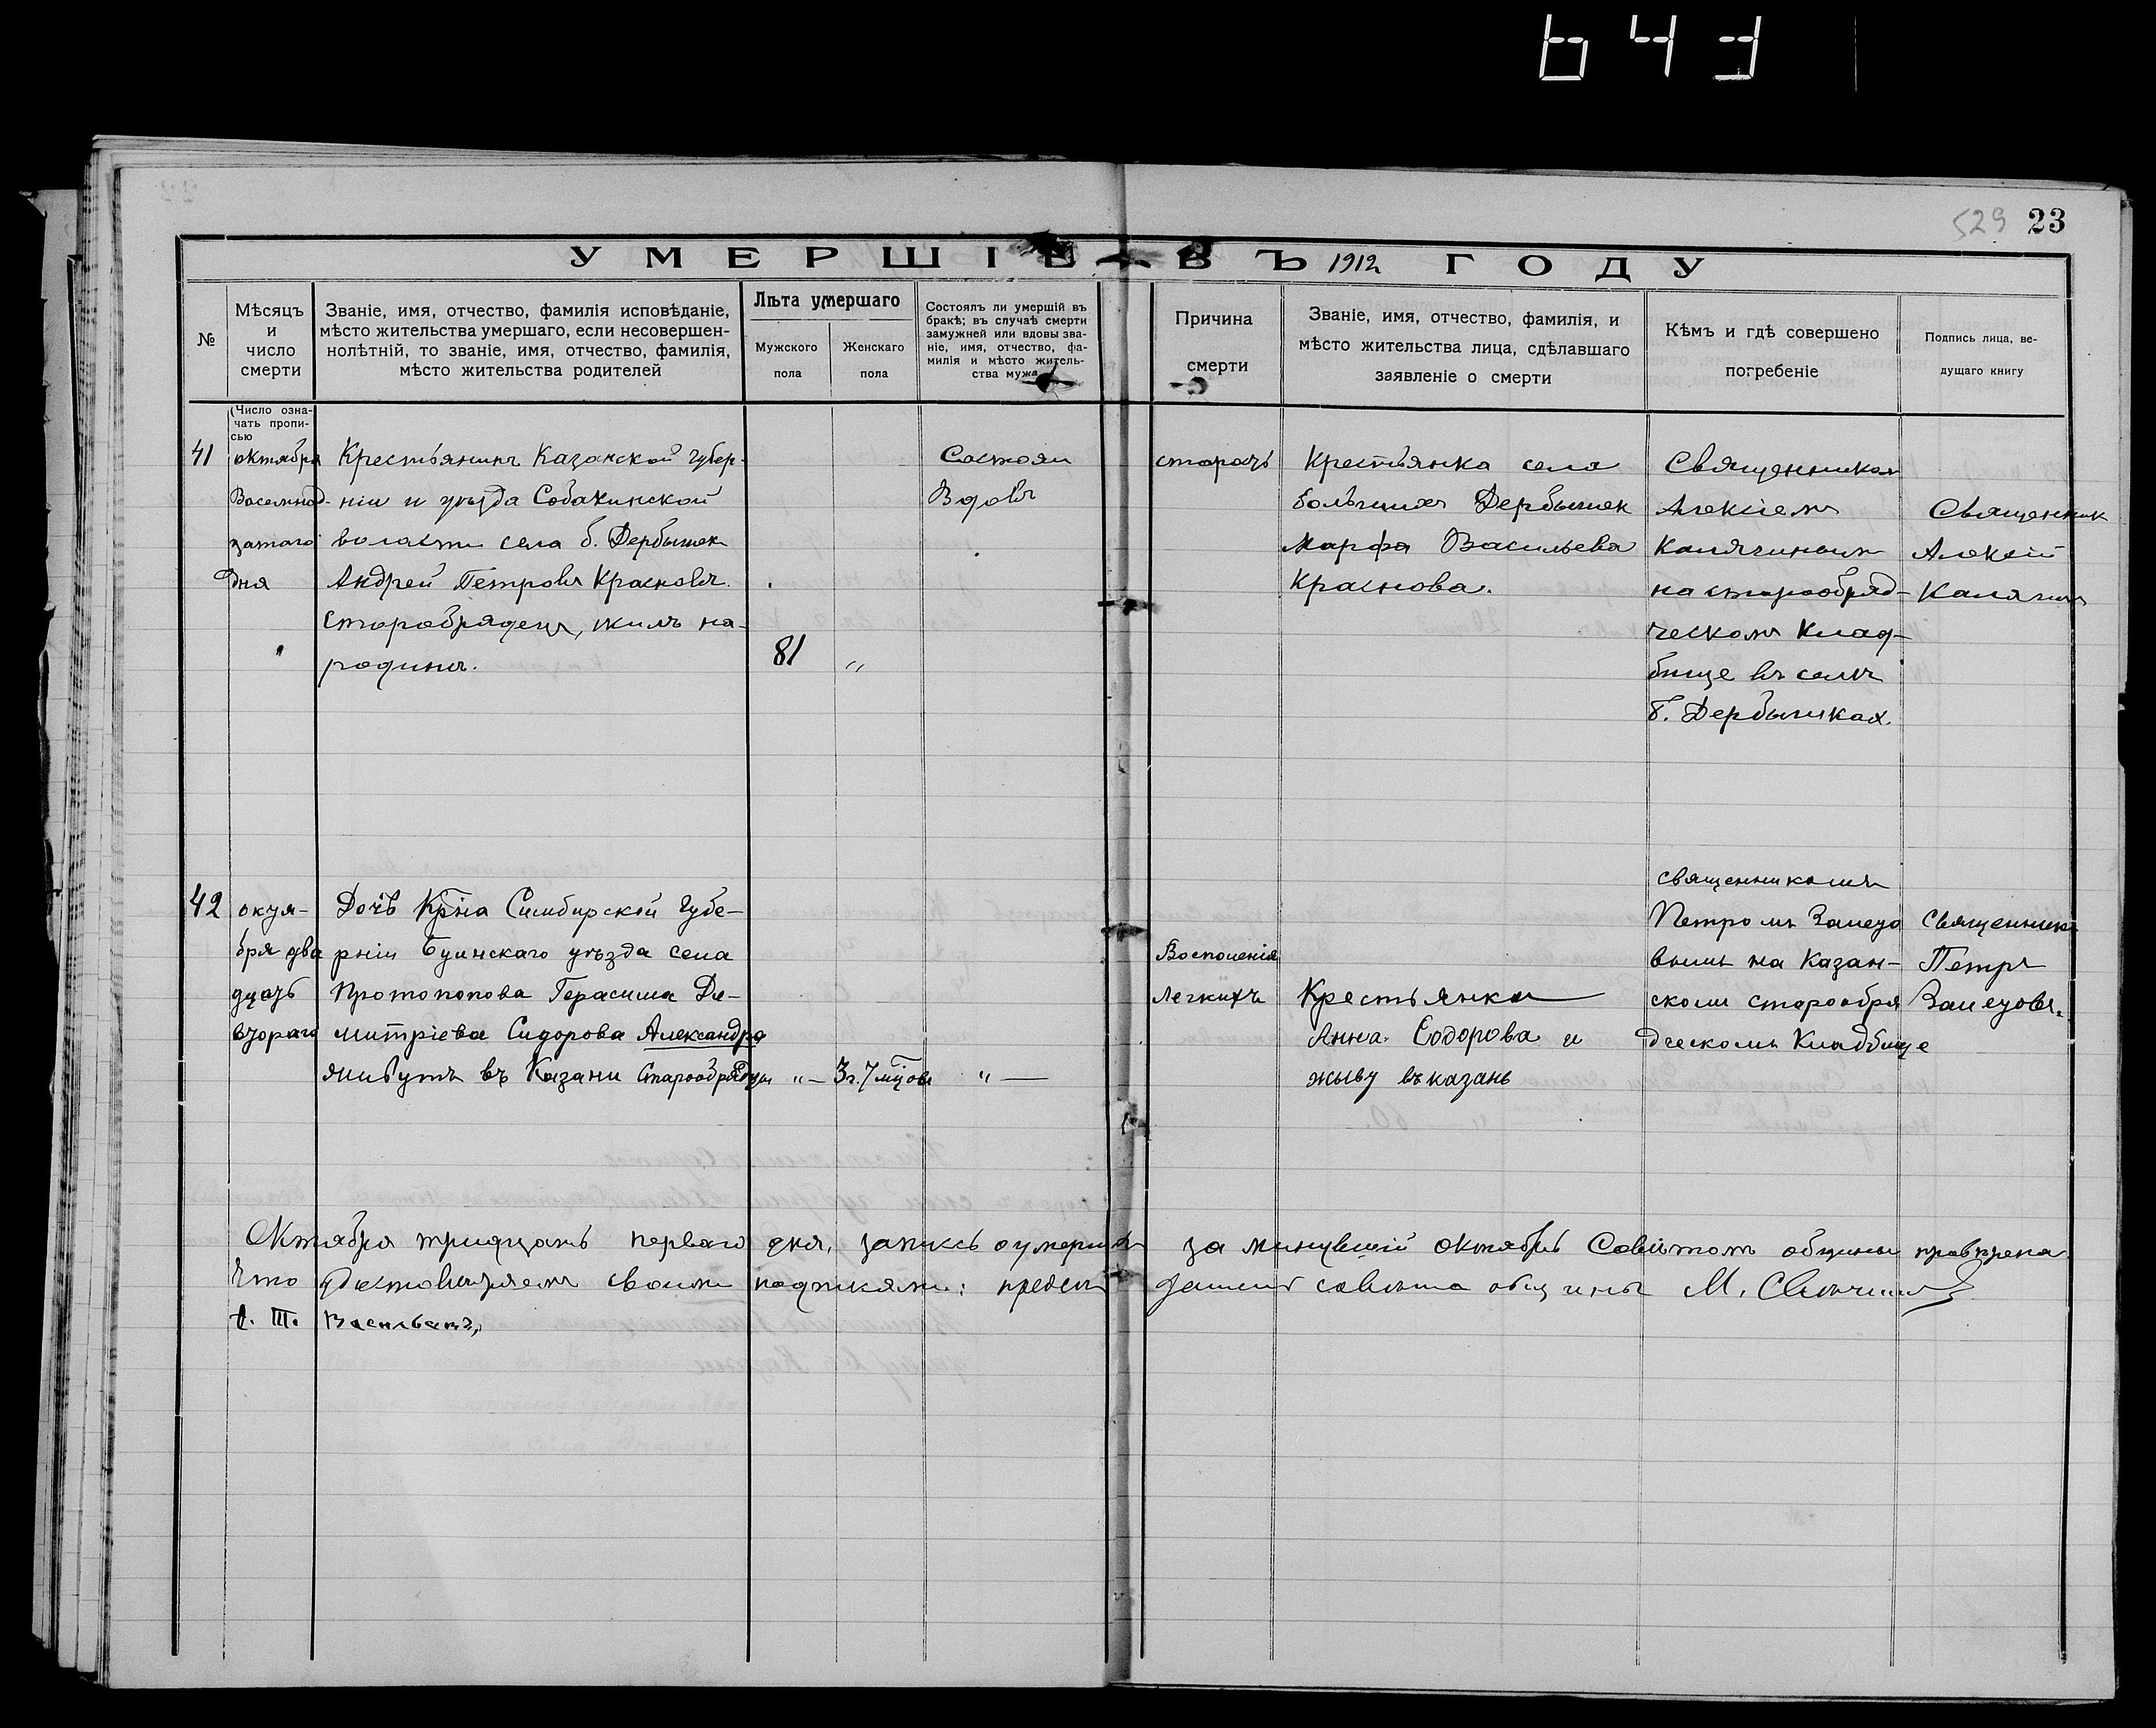 643
529 23
УМЕРШІЕ ВЪ 1912 ГОДУ
№
Мѣсяцъ
и
число
смерти
Званіе, имя, отчество, фамилія исповѣданіе,
мѣсто жительства умершаго, если несовершен-
нолѣтній, то званіе, имя, отчество, фамилія,
мѣсто жительства родителей
Лѣта умершаго
Мужского
пола
Женскаго
пола
Состоялъ ли умершій въ
бракѣ; въ случаѣ смерти
замужней или вдовы зва-
ніе, имя, отчество, фа-
милія и мѣсто житель-
ства мужа
Причина
смерти
Званіе, имя, отчество, фамилія, и
мѣсто жительства лица, сдѣлавшаго
заявленіе о смерти
Кѣмъ и гдѣ совершено
погребеніе
Подпись лица, ве-
дущаго книгу
(Число озна-
чать пропи-
сью
41
октября
Восемнад-
цатаго
дня
Крестьянинъ Казанской губер-
ніи и уѣзда Собакинской
волости села б. Дербышек
Андрей Петровъ Красновъ
старобрядецъ, жилъ на-
родинѣ.
81
"
Состоял
Вдовъ
старость
Крестьянка села
большихъ Дербышек
Марфа Васильева
Краснова.
Священником
Алексіемъ
Калягинымъ
на старообряд-
ческомъ Клад-
бище въ селѣ
б. Дербышках.
Священник
Алексій
Калягинъ
42
октя-
бря два
дцать
втораго
Дочь Кр͠на Симбирской губе-
рніи Буинскаго уѣзда села
Протопопова Герасима Ди-
митріева Сидорова Александра
живутъ въ Казани Старообрядцы
"— 3 г. 7 мцовъ "—
Воспоненія
легкихъ
Крестьянка
Анна Содорова и
жыву въ казань
священникомъ
Петромъ Залето
вымъ на Казан-
скомъ старообря
дческомъ Кладбище
Священникъ
Петръ
Залетовъ.
Октября тридцать перваго дня, запись о умершихъ за минувшій октябрь Совѣтомъ общины провѣрена
Что удостовѣряемъ своими подписями: предсѣдатель совѣта общины М.
Васильевъ,